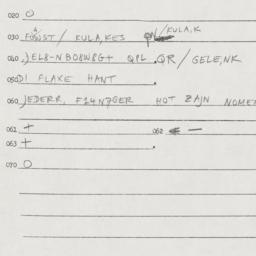 020 O
030 FAUST / KULA,KES /KULA,K
040 ,)EL8-NBO8W8G+ QPL .QR/GELE,NK
050 DI FLAXE HANT
060 ,)EDERR, F14N7GER HOT ZAJN NOMEN
061 + 062 ← —
063 + .
070 O